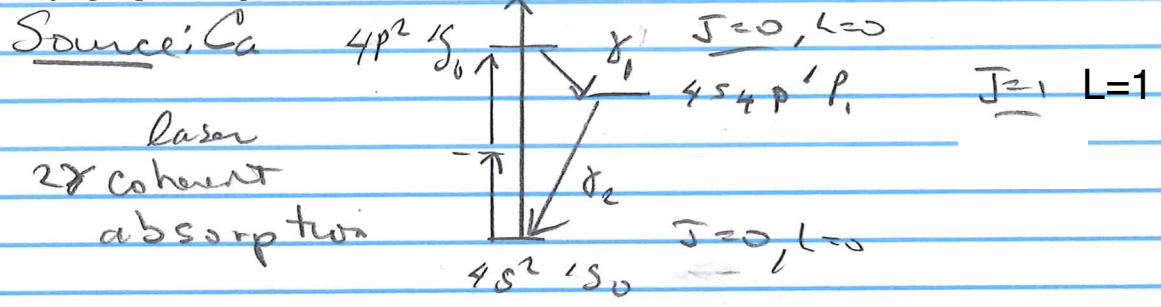 Source: Ca
4p² ¹S₀
γ₁
J=0, L=0
4s4p ¹P₁
J=1 L=1
laser
2γ coherent
absorption
γ₂
J=0, L=0
4s² ¹S₀